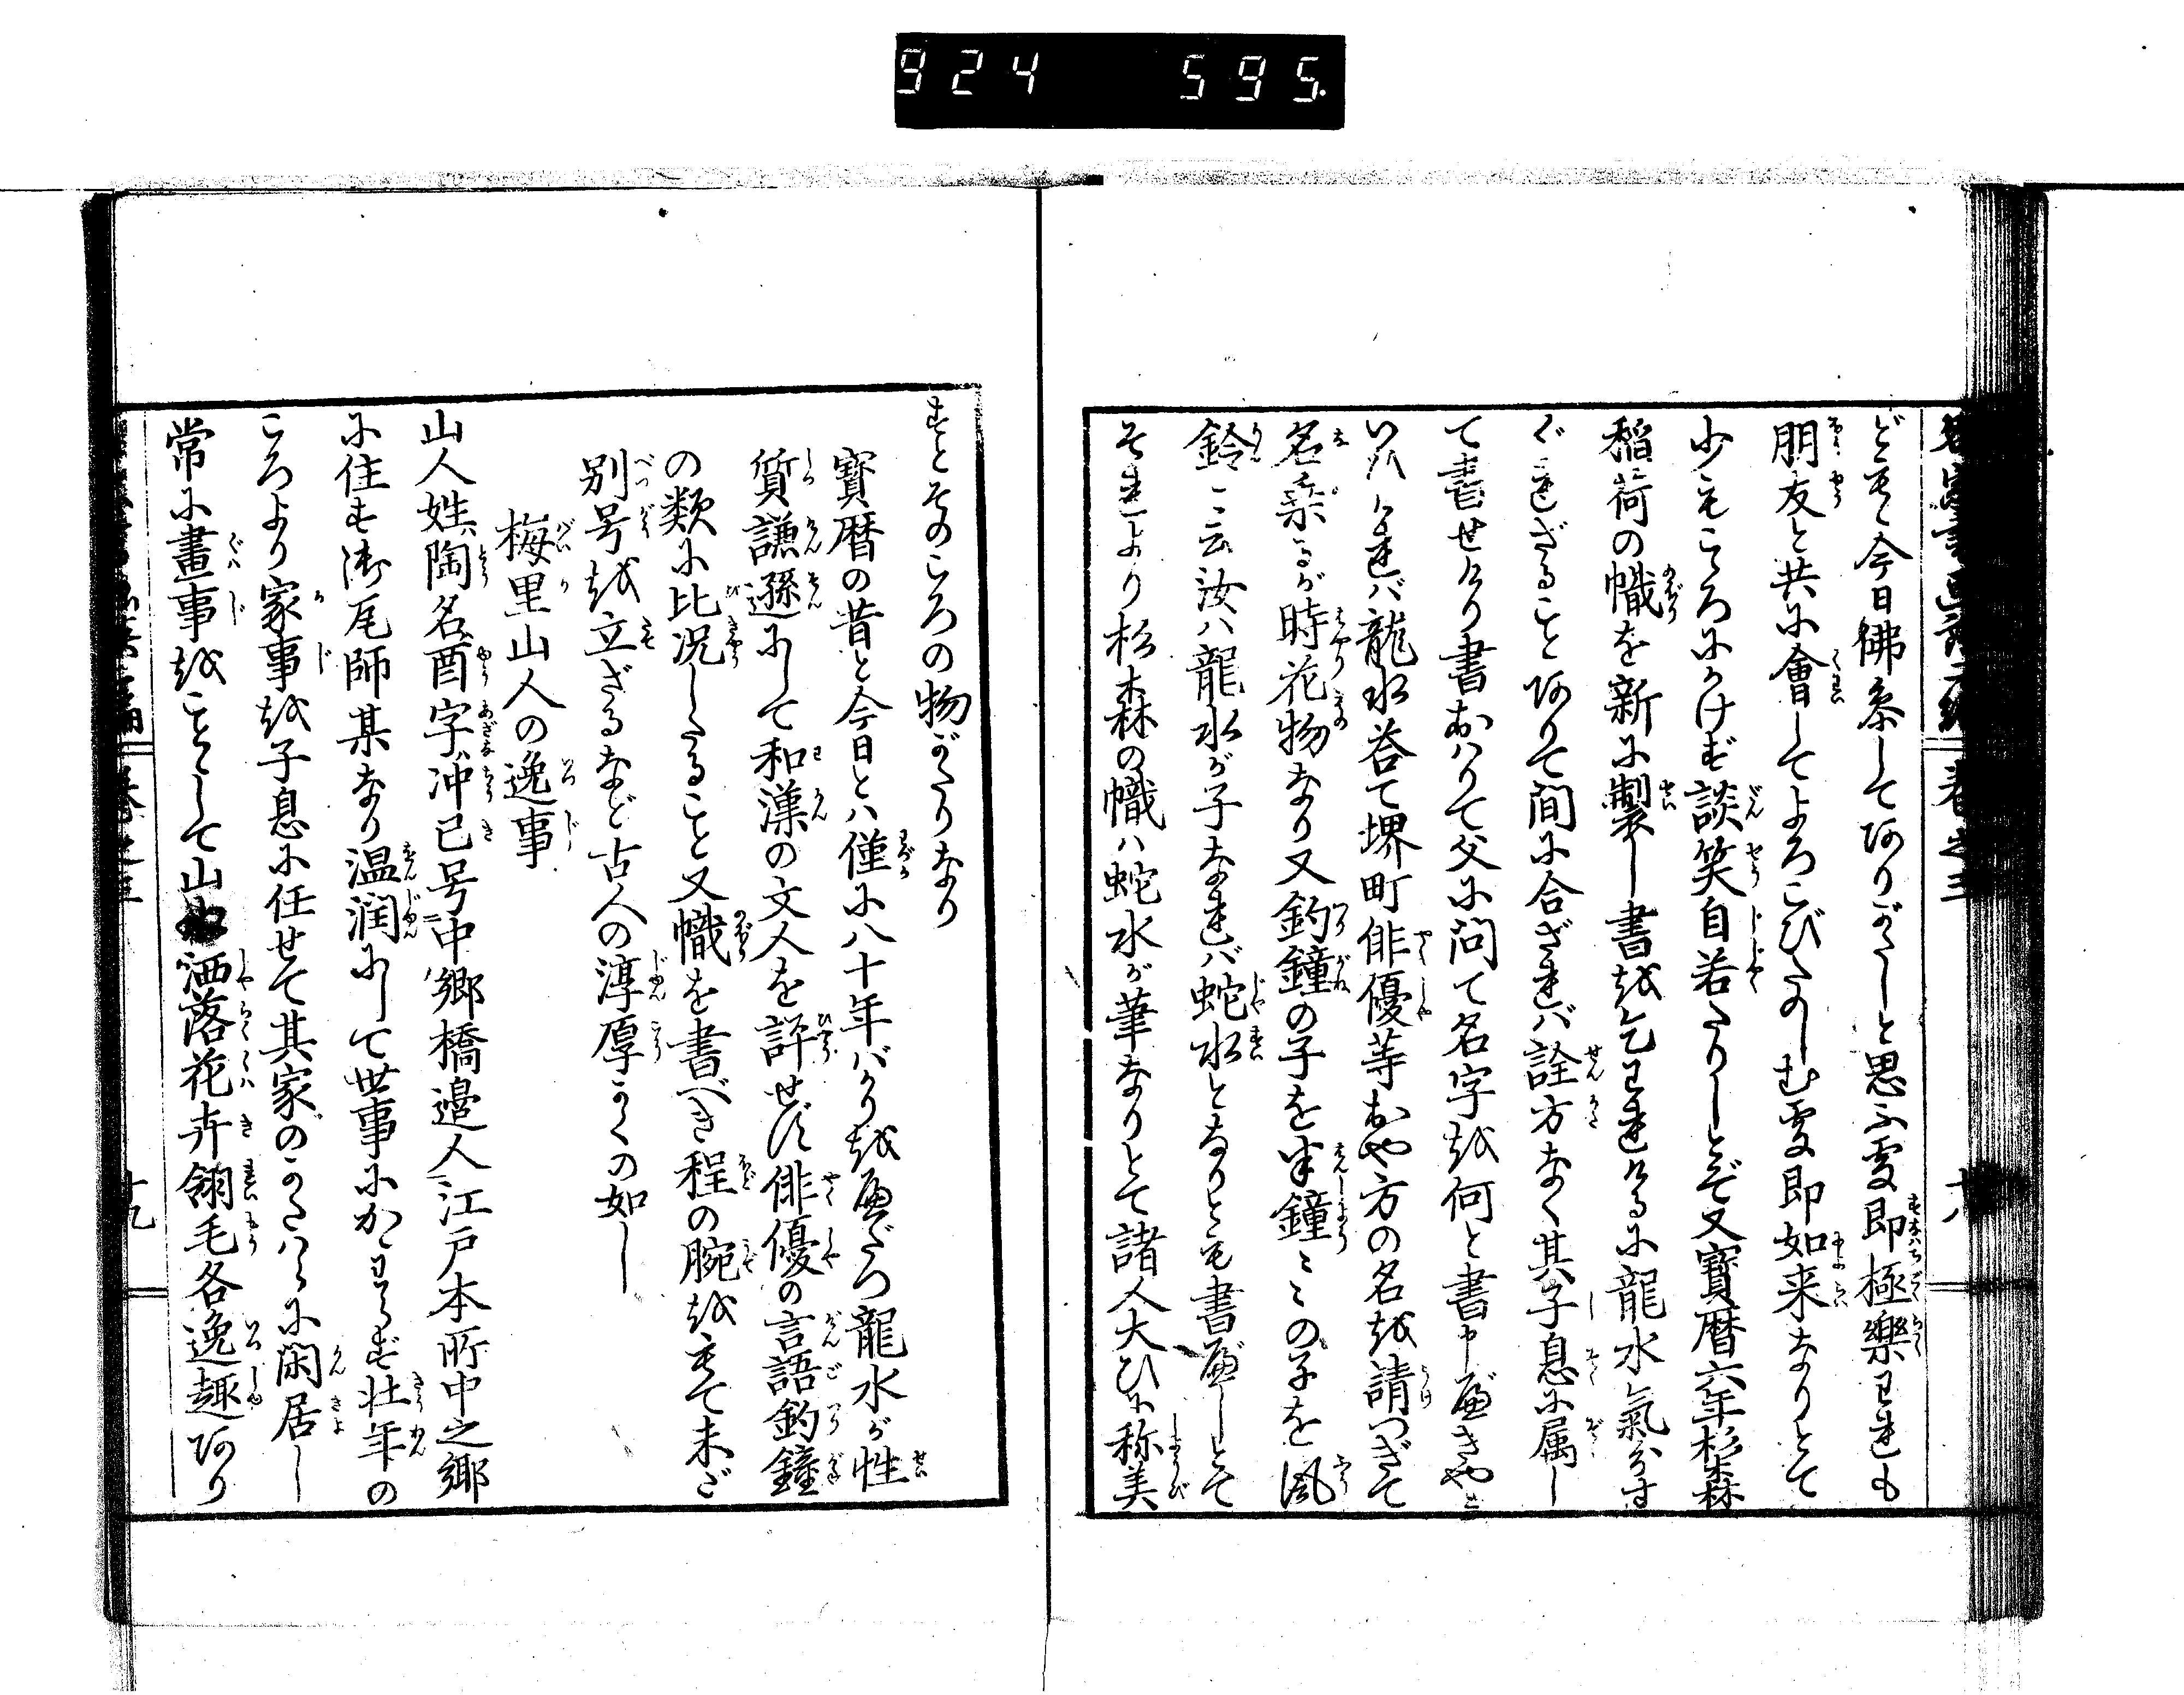 924 595
どもて今日佛参して阿りがたしと思ふ処即極樂われも
朋友と共に會してよろこびたのしむ処即如来なりとて
少もこゝろにかけず談笑自若たりしとぞ又寳暦六年杉森
稲荷の幟を新に製し書を乞われけるに龍水氣分す
ぐれざること阿りて間に合ざれバ詮方なく其子息に属し
て書せけり書おハりて父に問て名字を何と書申べきやと
いひけれバ龍水荅て堺町俳優等おや方の名を請つぎて
名乗るが時花物なり又釣鐘の子を半鐘〻〻の子を風
鈴と云汝ハ龍水が子なれバ蛇水となりとも書べしとて
それより杉森の幟ハ蛇水が筆なりとて諸人大ひに称美
せしとそのころの物がたりなり
寳暦の昔と今日とハ僅に八十年バかりを歴だつ龍水が性
質謙遜にして和漢の文人を評せず俳優の言語釣鐘
の類に比况したること又幟を書べき程の腕をもて未ざ
別号を立ざるなど古人の淳厚かくの如し
梅里山人の逸事
山人姓陶名酉字冲已号中郷橋邉人江戸本所中之郷
に住す御瓦師某なり温潤にして世事にかゝわらず壮年の
ころより家事を子息に任せて其家のかたハらに閑居し
常に畫事をこととして山水洒落花卉翎毛各逸趣阿り
卷之三
十八
十九